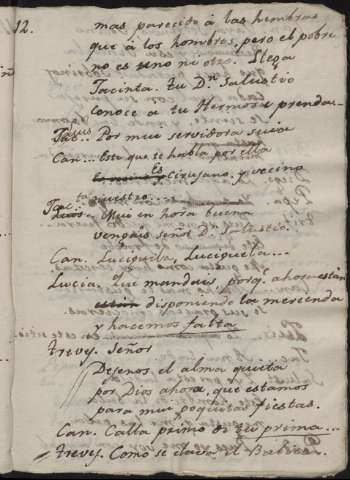 12. mas parecido à las hembras
que à los hombres, pero el pobre
no es uno ni otro. Llega
Jacinta. tu Dn. Salustio
conoce a tu Hermosa prenda
Jac.. Por mui servidora suia
Can... Este que se habla por ella
Es Cirujano. y vecino
nuestro...
Mui en hora buena
vengais señor D. Salustio.
Can. Luciguela, Luciguela...
Lucia. Que mandais, porq. ahora están
están disponiendo la merienda
y hacemos falta
trevej. Señor
Dejenos el alma quieta
por Dios ahora, que estamos
para mui poquitas fiestas.
Can. Calla primo di tu prima...
trevej. Como se clava el